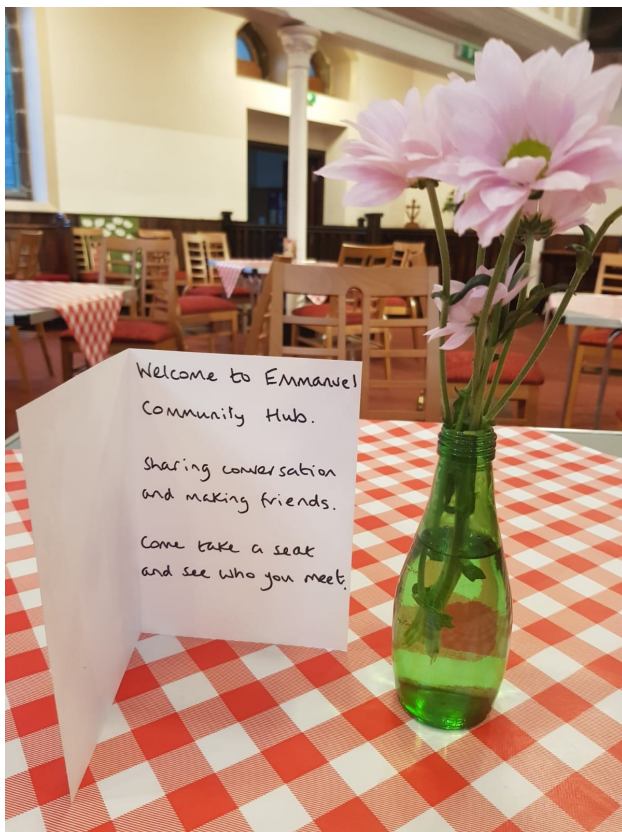 Welcome to Emmanuel
Community Hub.
Sharing conversation
and making friends.
Come take a seat
and see who you meet.